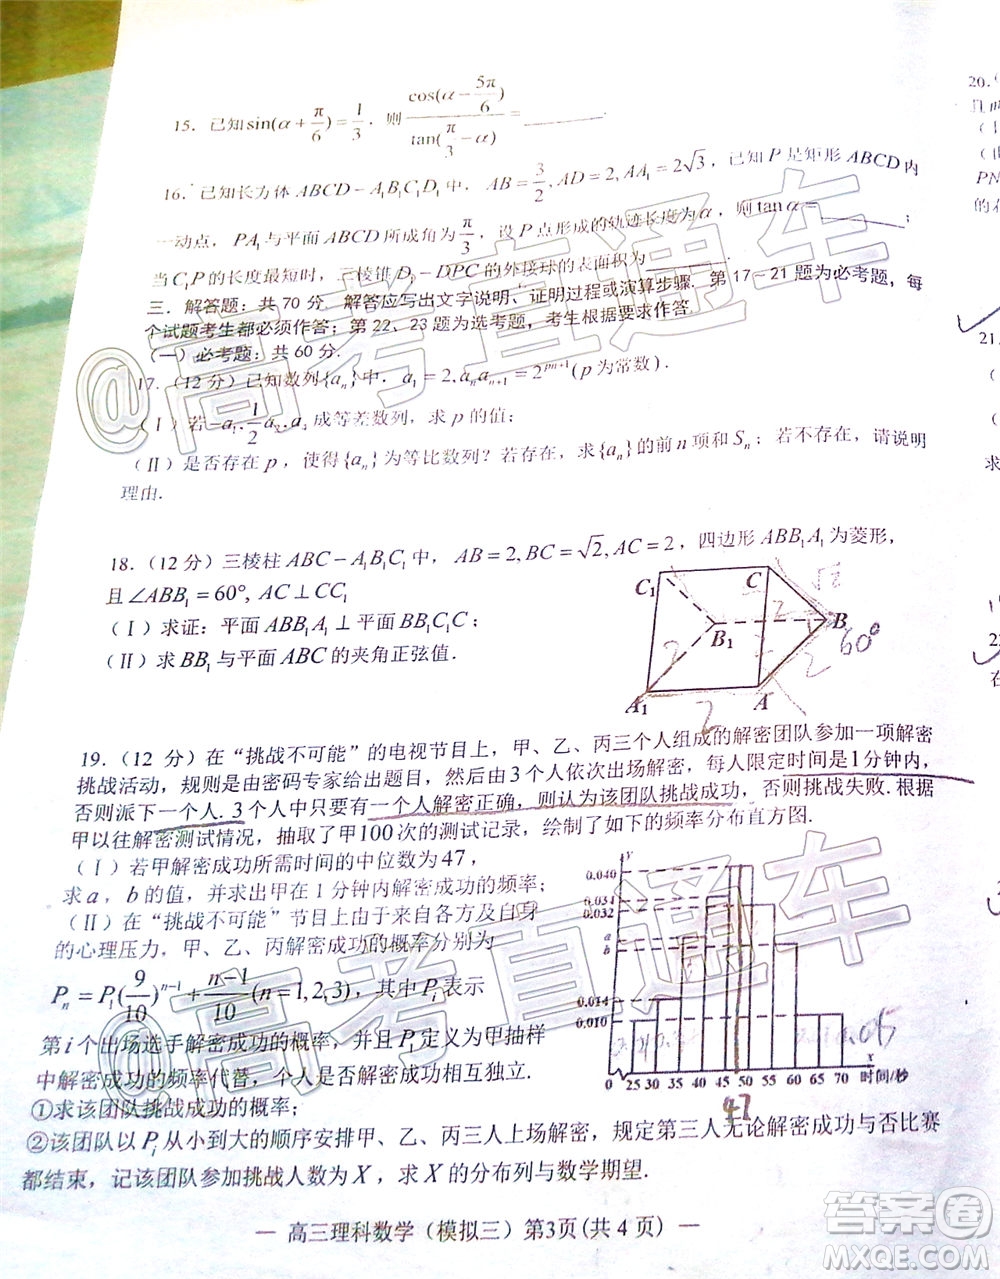 15. 已知sin(α+π/6)=1/3. 则 cos(α−5π/6)/tan(π/3−α)=________.
16. 已知长方体 ABCD−A₁B₁C₁D₁ 中, AB=3/2, AD=2, AA₁=2√3, 已知 P 是矩形 ABCD 内
一动点, PA₁与平面 ABCD 所成角为π/3, 设 P 点形成的轨迹长度为α, 则 tanα=________;
当 C₁P 的长度最短时, 三棱锥 D₁−DPC 的外接球的表面积为________.
三. 解答题: 共 70 分. 解答应写出文字说明、证明过程或演算步骤. 第 17~21 题为必考题, 每
个试题考生都必须作答; 第 22、23 题为选考题, 考生根据要求作答.
(一) 必考题: 共 60 分.
17. (12 分) 已知数列{aₙ}中. a₁=2, aₙaₙ₊₁=2^(pn+1) (p 为常数).
(Ⅰ) 若−a₁, 1/2 a₂, a₄ 成等差数列, 求 p 的值;
(Ⅱ) 是否存在 p, 使得{aₙ}为等比数列? 若存在, 求{aₙ}的前 n 项和 Sₙ; 若不存在, 请说明
理由.
18. (12 分) 三棱柱 ABC−A₁B₁C₁ 中, AB=2, BC=√2, AC=2, 四边形 ABB₁A₁ 为菱形,
且 ∠ABB₁=60°, AC⊥CC₁
(Ⅰ) 求证: 平面 ABB₁A₁⊥平面 BB₁C₁C;
(Ⅱ) 求 BB₁与平面 ABC 的夹角正弦值.
C₁ C √2
2
B₁ B 60°
2 2
A₁ 2 A
19. (12 分) 在“挑战不可能”的电视节目上, 甲、乙、丙三个人组成的解密团队参加一项解密
挑战活动, 规则是由密码专家给出题目, 然后由 3 个人依次出场解密, 每人限定时间是1分钟内,
否则派下一个人. 3个人中只要有一个人解密正确, 则认为该团队挑战成功, 否则挑战失败. 根据
甲以往解密测试情况, 抽取了甲100次的测试记录, 绘制了如下的频率分布直方图.
(Ⅰ) 若甲解密成功所需时间的中位数为 47,
求 a, b 的值, 并求出甲在 1 分钟内解密成功的频率;
(Ⅱ) 在“挑战不可能”节目上由于来自各方及自身
的心理压力, 甲、乙、丙解密成功的概率分别为
Pₙ=P₁(9/10)ⁿ⁻¹+(n−1)/10 (n=1,2,3), 其中Pᵢ表示
第 i 个出场选手解密成功的概率, 并且 P₁ 定义为甲抽样
中解密成功的频率代替, 各人是否解密成功相互独立.
①求该团队挑战成功的概率;
②该团队以 Pᵢ 从小到大的顺序安排甲、乙、丙三人上场解密, 规定第三人无论解密成功与否比赛
都结束, 记该团队参加挑战人数为 X, 求 X 的分布列与数学期望.
y
0.040
0.034
0.032
a
b
0.014
0.010
0 25 30 35 40 45 50 55 60 65 70 时间/秒
x
47
— 高三理科数学 (模拟三) 第3页(共 4 页) —
20.
(Ⅰ)
PN
的
21.
求
在
@高考直通车
@高考直通车
答案圈
MXQE.COM